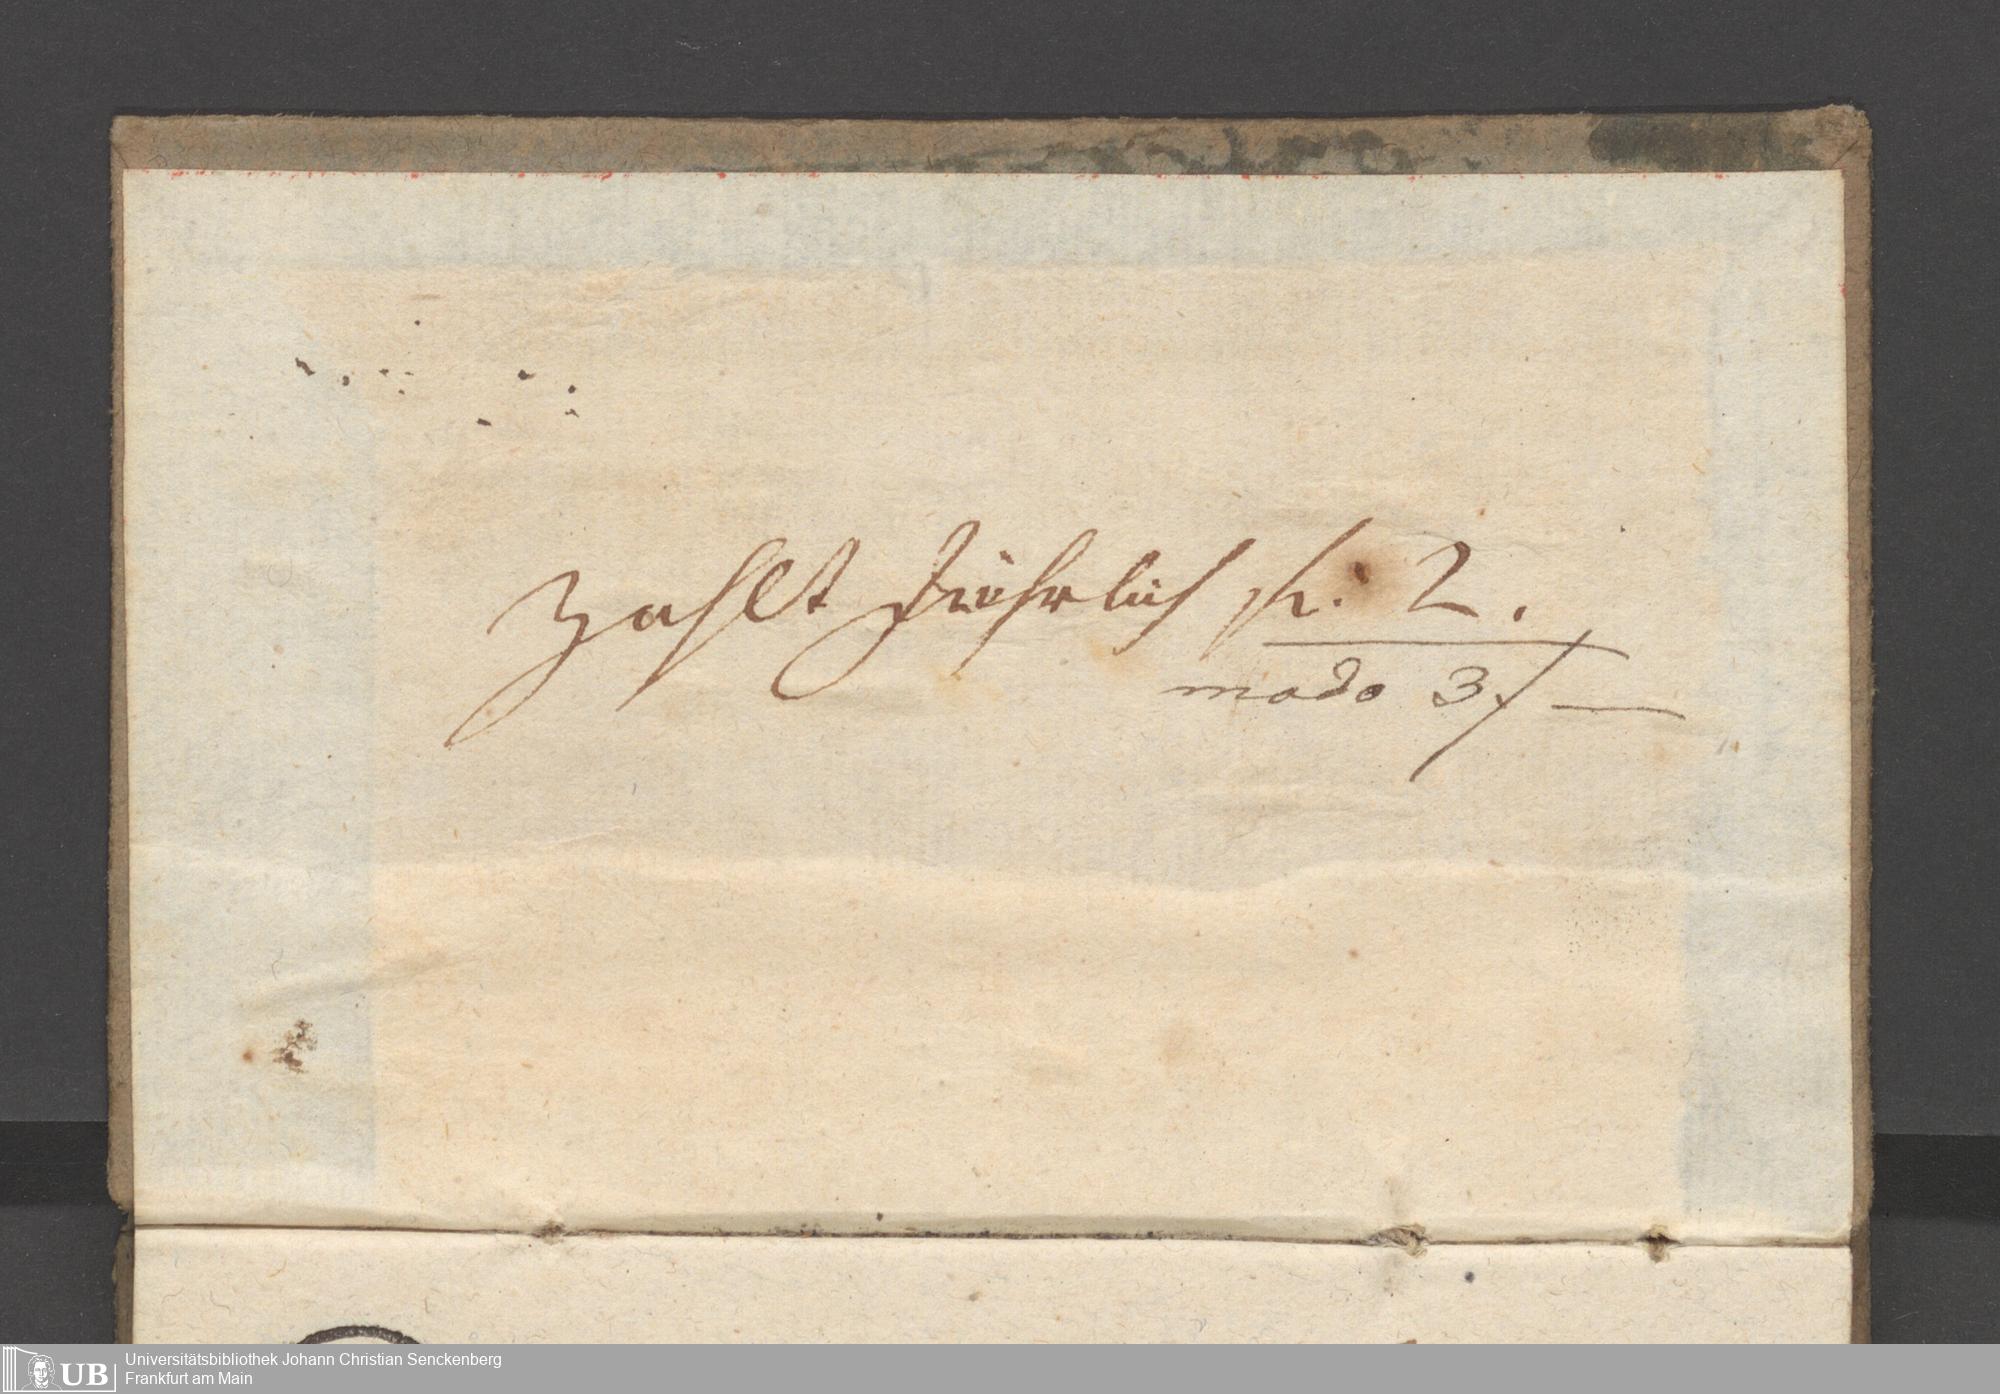 zahlt jährlich fl. 2.
modo 3./ —
UB
Universitätsbibliothek Johann Christian Senckenberg
Frankfurt am Main